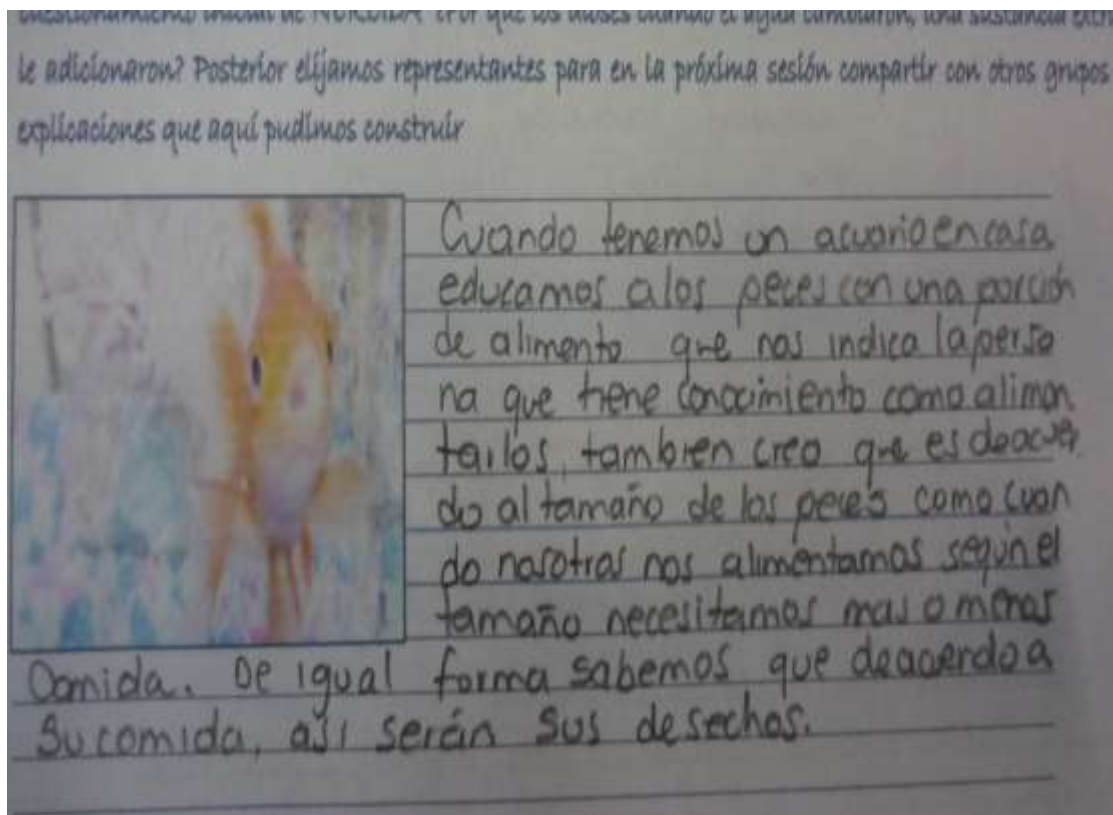 cuestionamiento inicial de "¿Por qué los dioses cuando el agua cambiaron, una sustancia
le adicionaron? Posterior elijamos representantes para en la próxima sesión compartir con otros grupos
explicaciones que aquí pudimos construir
Cuando tenemos un acuario en casa
educamos a los peces con una porción
de alimento que nos indica la perso
na que tiene conocimiento como alimen
tarlos, tambien creo que es deacuer
do al tamaño de los peces como cuan
do nosotros nos alimentamos segun el
tamaño necesitamos mas o menos
Comida. De igual forma sabemos que deacuerdo a
Su comida, así serán sus desechos.